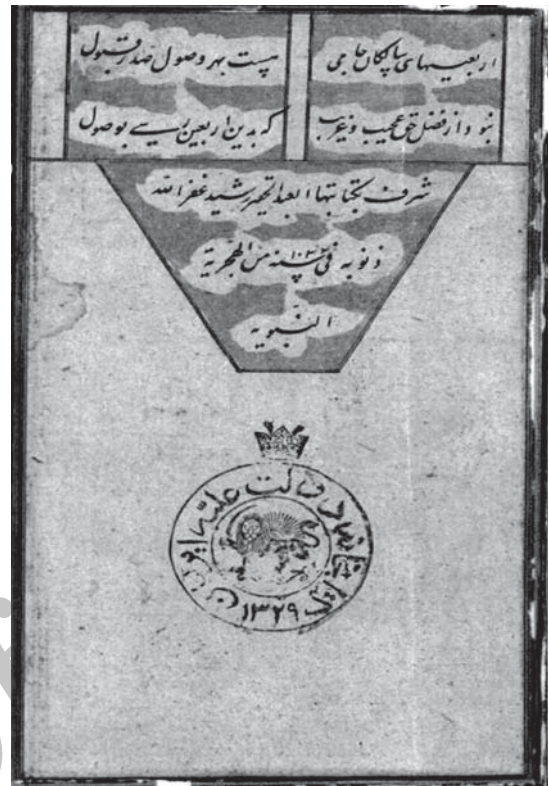 اربعینهای سالکان جامی هست بهر وصول صدر قبول
نبود از فضل حق عجیب و غریب که بدین اربعین رسی بوصول
شرف بکتابتها العبد الحقیر رشید غفر الله
ذنوبه فی سنه من الهجریة
النبویه
دولت علیه ایران
۱۳۲۹